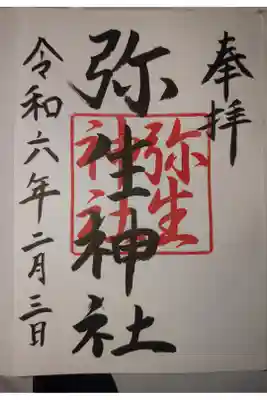 奉拝
弥生神社
弥生
神社
令和六年二月三日